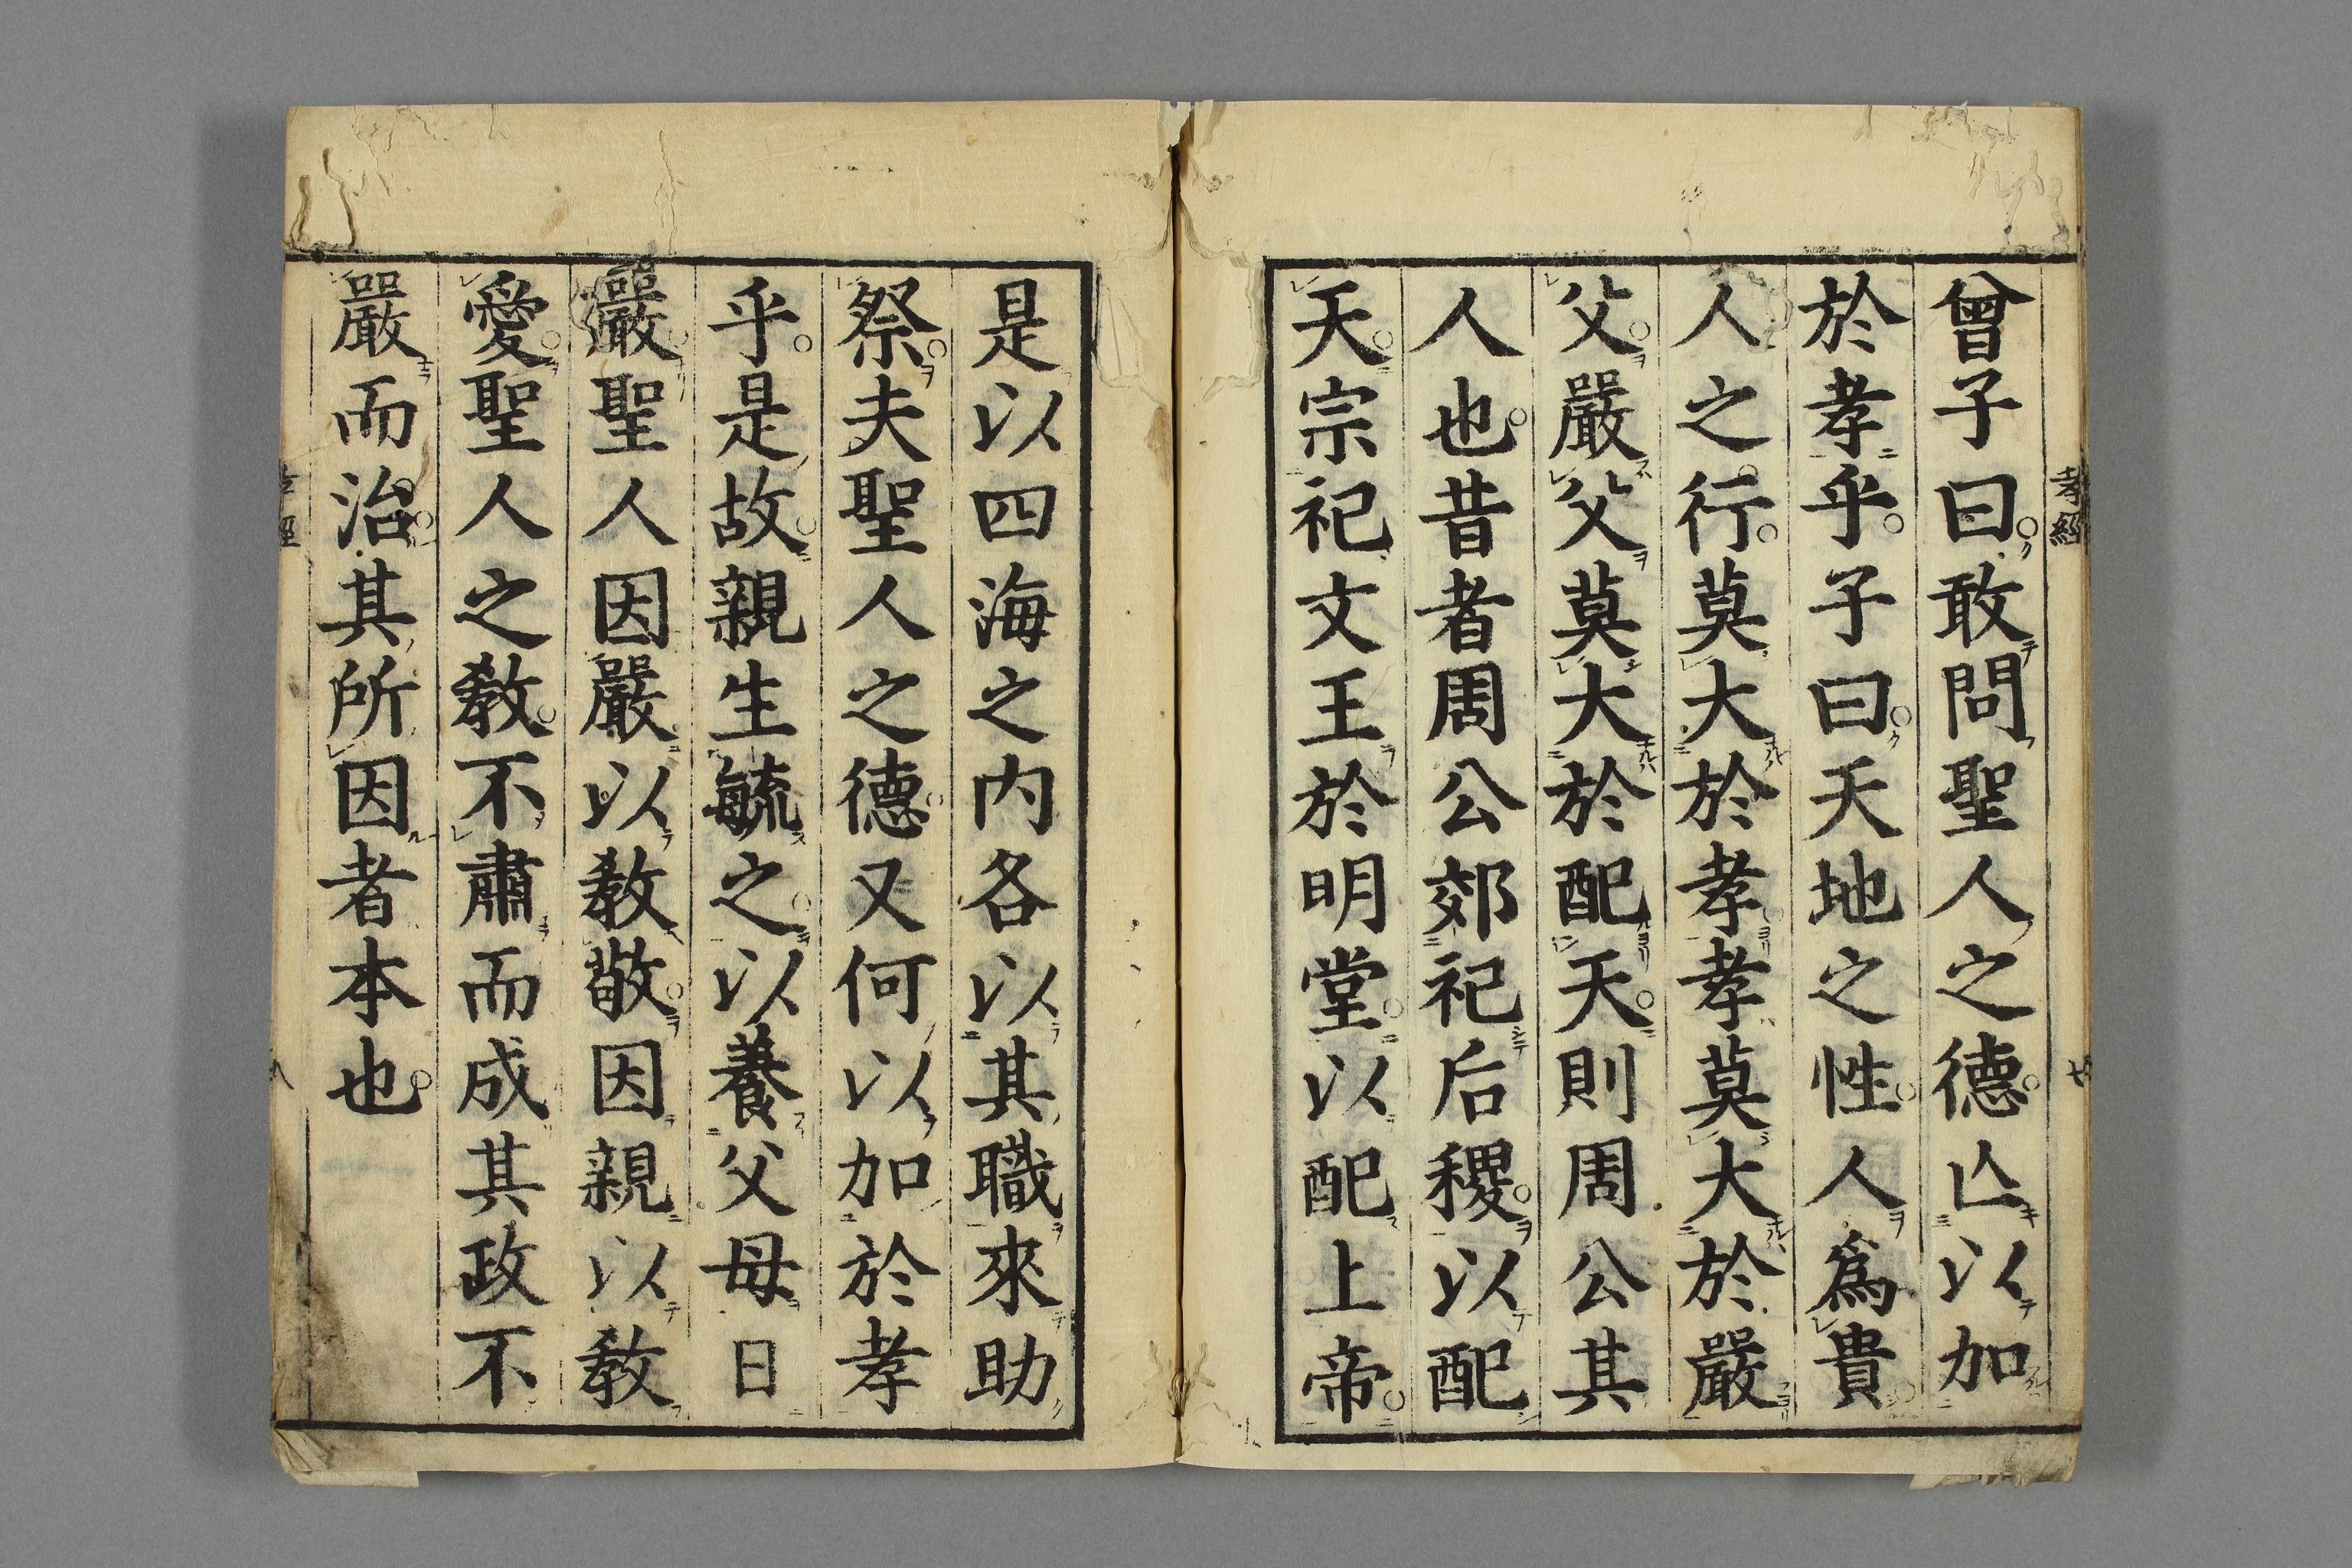 孝經
曾子曰敢問聖人之德亾以加
於孝乎子曰天地之性人爲貴
人之行莫大於孝孝莫大於嚴
父嚴父莫大於配天則周公其
人也昔者周公郊祀后稷以配
天宗祀文王於明堂以配上帝
是以四海之内各以其職來助
祭夫聖人之德又何以加於孝
乎是故親生毓之以養父母日
嚴聖人因嚴以敎敬因親以敎
愛聖人之敎不肅而成其政不
嚴而治其所因者本也